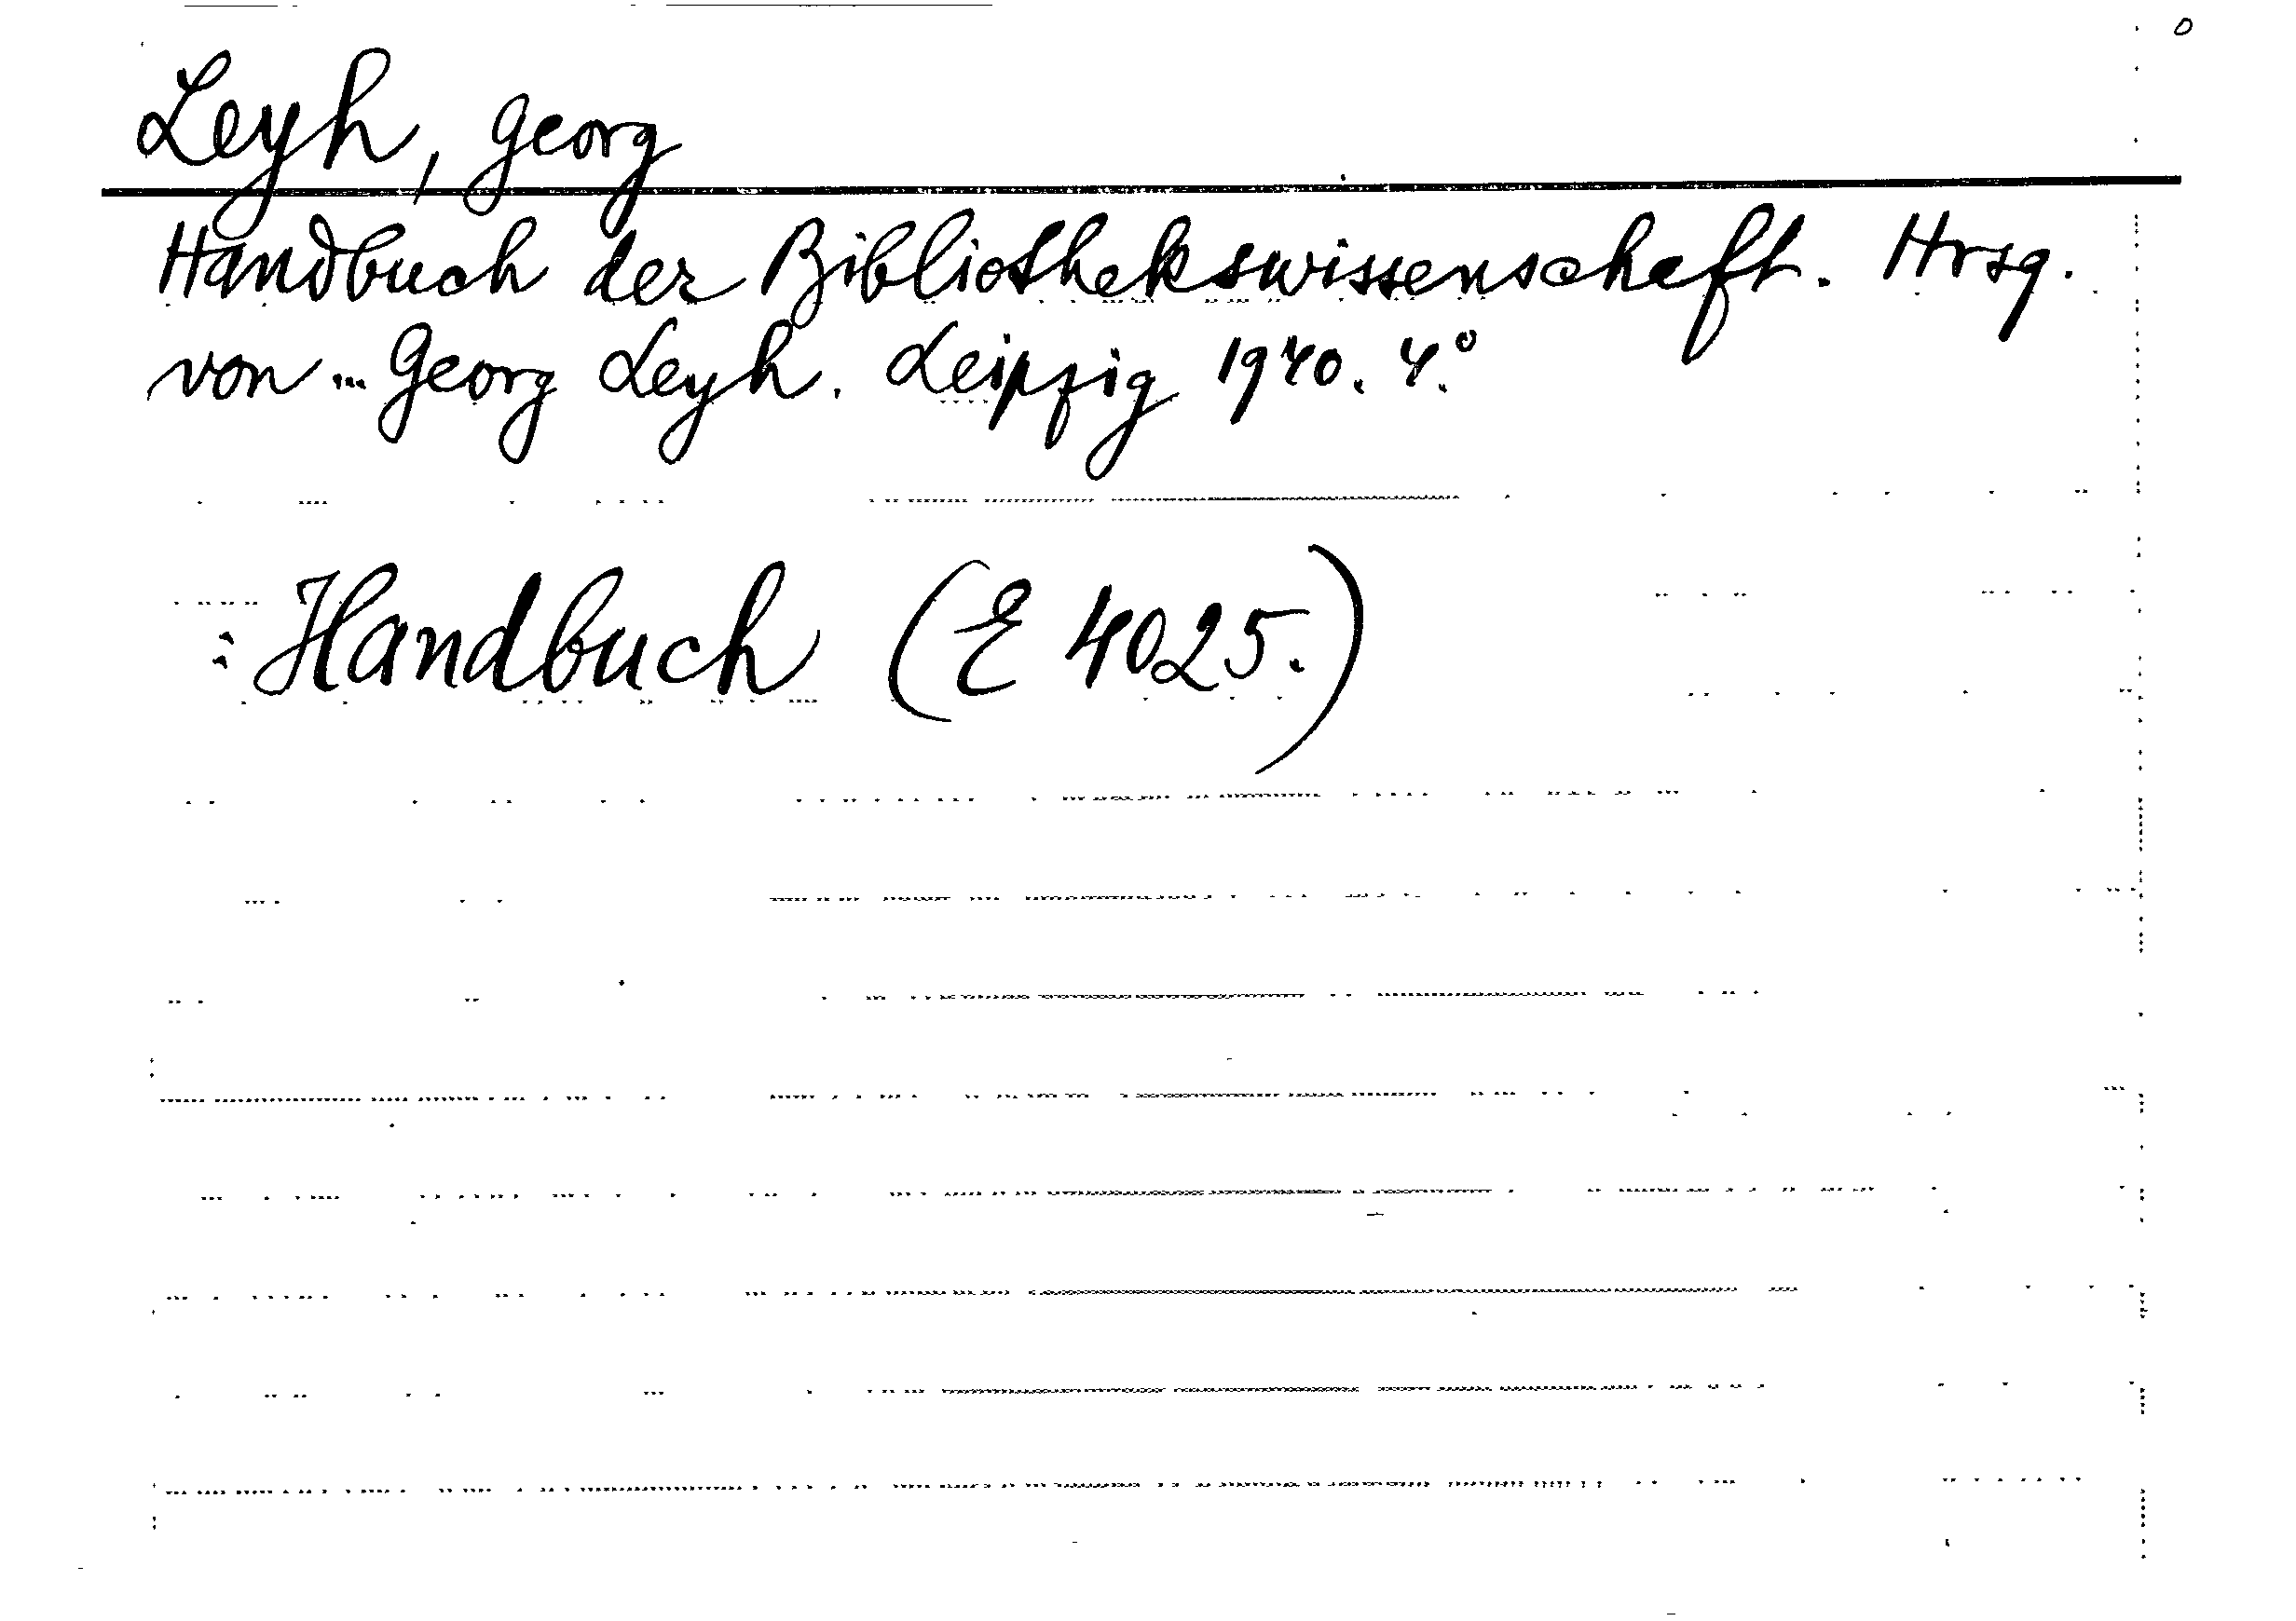 Leyh, Georg
Handbuch der Bibliothekswissenschaft. Hrsg.
von ... Georg Leyh. Leipzig 1940. 4.°
: Handbuch (E 4025.)